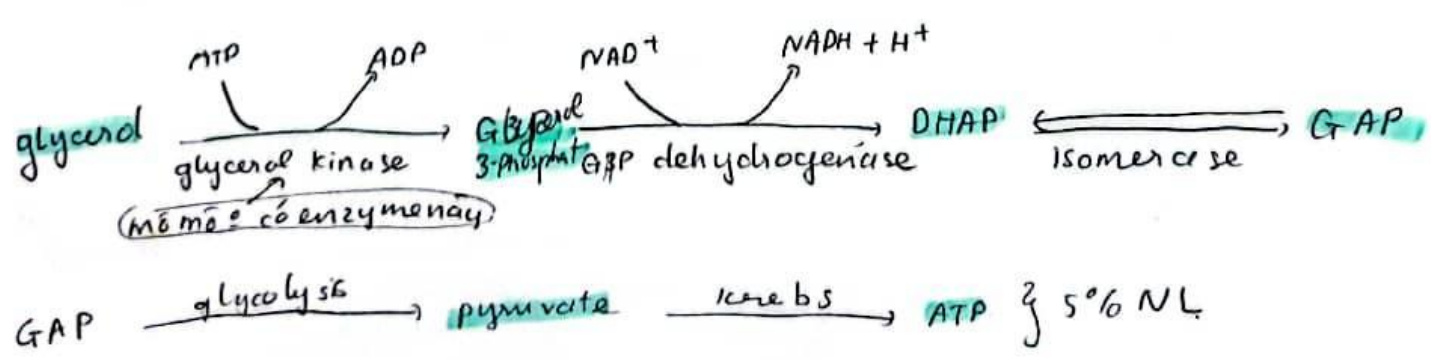 ATP ADP NAD+ NADH + H+
glycerol Glycerol DHAP GAP
glycerol kinase 3-phosphat G3P dehydrogenase isomerase
mô mỡ không có enzyme này
GAP glycolysis pyruvate krebs ATP } 5% NL